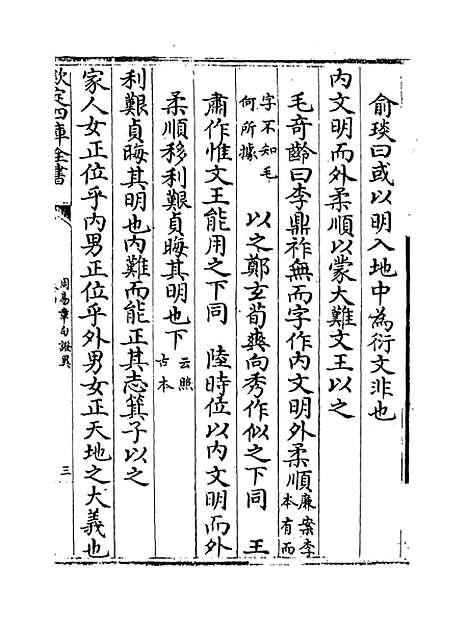 俞琰曰或以明入地中為衍文非也
内文明而外柔順以蒙大難文王以之
毛奇齡曰李鼎祚無而字作内文明外柔順廉案李
本有而
字不知毛
何所據
以之鄭玄荀爽向秀作似之下同 王
肅作惟文王能用之下同 陸時位以内文明而外
柔順移利艱貞晦其明也下云照
古本
利艱貞晦其明也内難而能正其志箕子以之
家人女正位乎内男正位乎外男女正天地之大義也
欽定四庫全書
周易章句證異
三